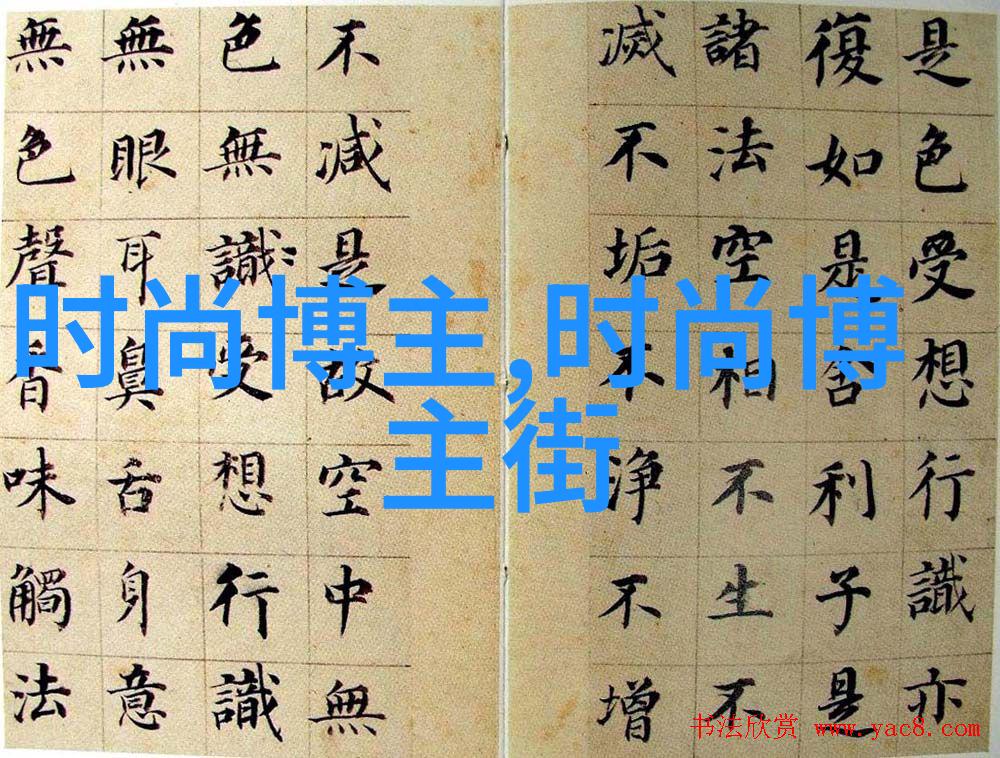 是色受想行識亦
復如是舍利子是
諸法空相不生不
滅不垢不淨不增
不減是故空中無
色無識受想行識
無眼耳鼻舌身意
無色聲香味觸法
时尚博主,时尚博
主街
书法欣赏 www.yac8.com